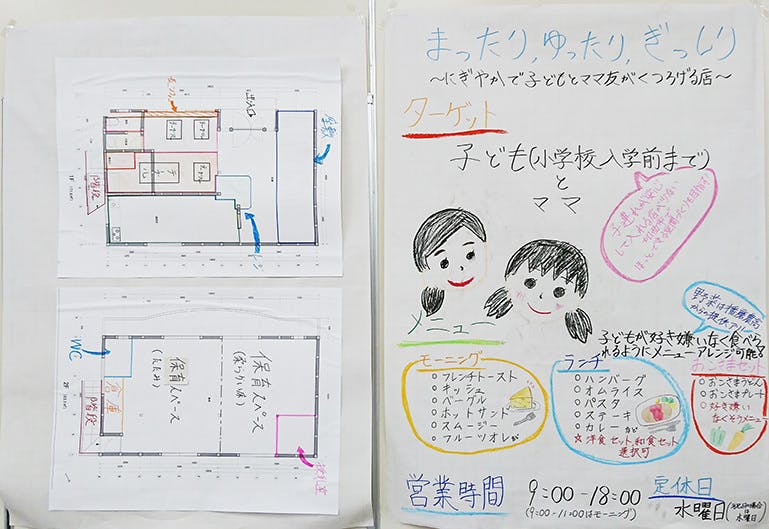 まったり,ゆったり,ぎっしり
〜にぎやかで子どもとママ友がくつろげる店〜
ターゲット
子ども(小学校入学前まで)
と
ママ
子連れが安心
して入れる店が少ない
メニュー
子どもが好き嫌いなく食べら
れるようにメニューアレンジ可能!
モーニング
○フレンチトースト
○キッシュ
○ベーグル
○ホットサンド
○スムージー
○フルーツオレ など
ランチ
○ハンバーグ
○オムライス
○パスタ
○ステーキ
○カレー など
☆洋食セット,和食セット
選択可
おこさまセット
○おこさまうどん
○おこさまプレート
○好き嫌い
なくそうメニュー
営業時間
9:00-18:00
(9:00-11:00はモーニング)
定休日
水曜日
出入口
座敷
テーブル
テーブル
階段
レジ
1F
WC
倉庫
階段
保育スペース
(たたみ)
保育スペース
2F